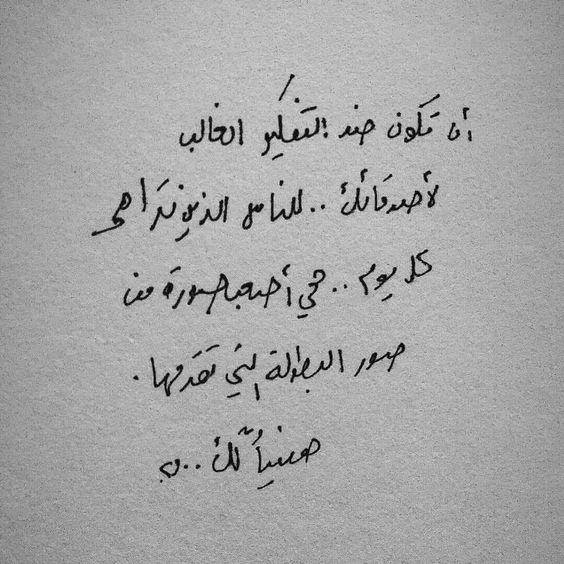 أن تكون ضد التفكير الغالب
لأصدقائك .. للناس الذين تراهم
كل يوم .. هي أصعب صورة من
صور البطولة التي تقدمها .
هنيئاً لك ..